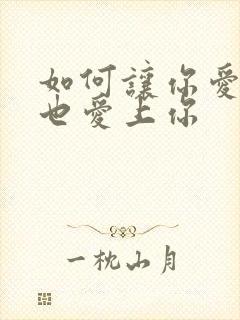 如何讓你愛
也愛上你
一枕山月